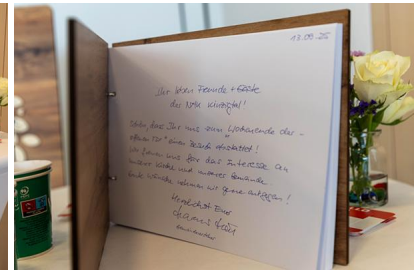 13.09.25
Ihr lieben Freunde + Gäste
der NAK Kinzigtal!
Schön, dass Ihr uns zum "Wochenende der
offenen Tür" einen Besuch abstattet!
Wir freuen uns für das Interesse an
unserer Kirche und unserer Gemeinde.
Eure Wünsche nehmen wir gerne entgegen!
Herzlichst Euer